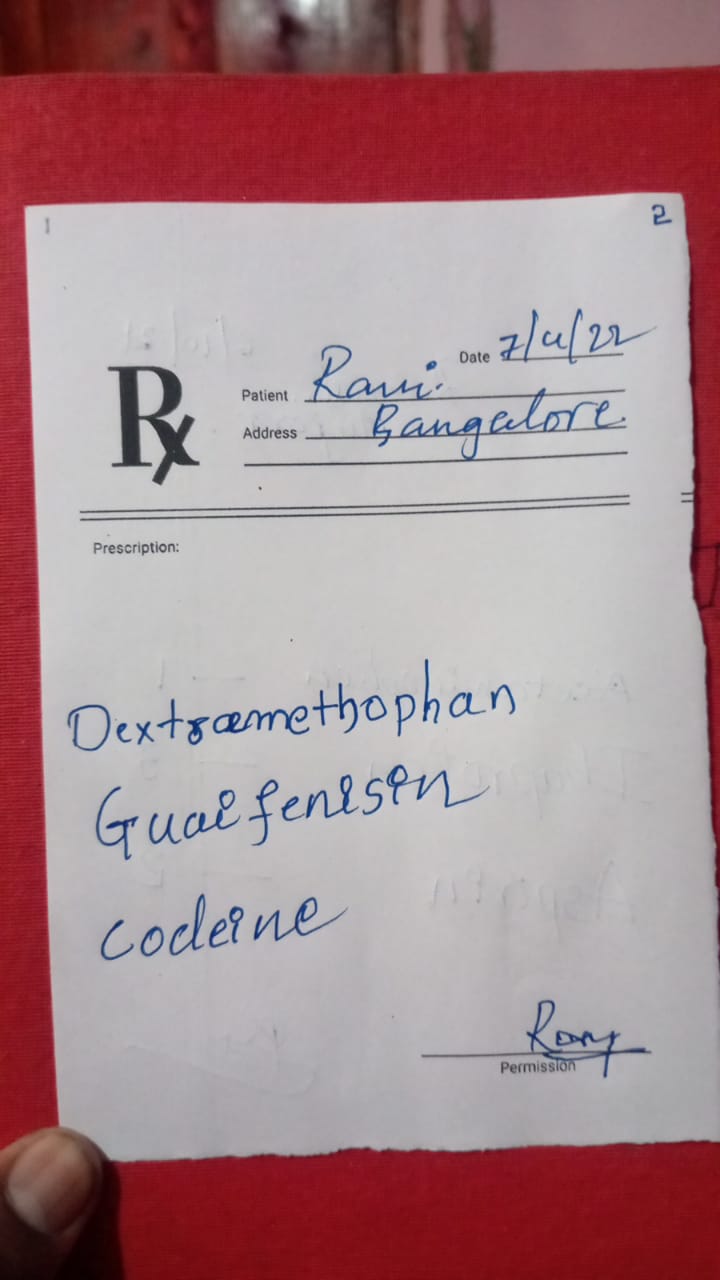 1
2
Rx
Date 7/4/22
Patient Ravi.
Address Bangalore.
Prescription:
Dextramethophan
Guaifenisin
Codeine
Permission